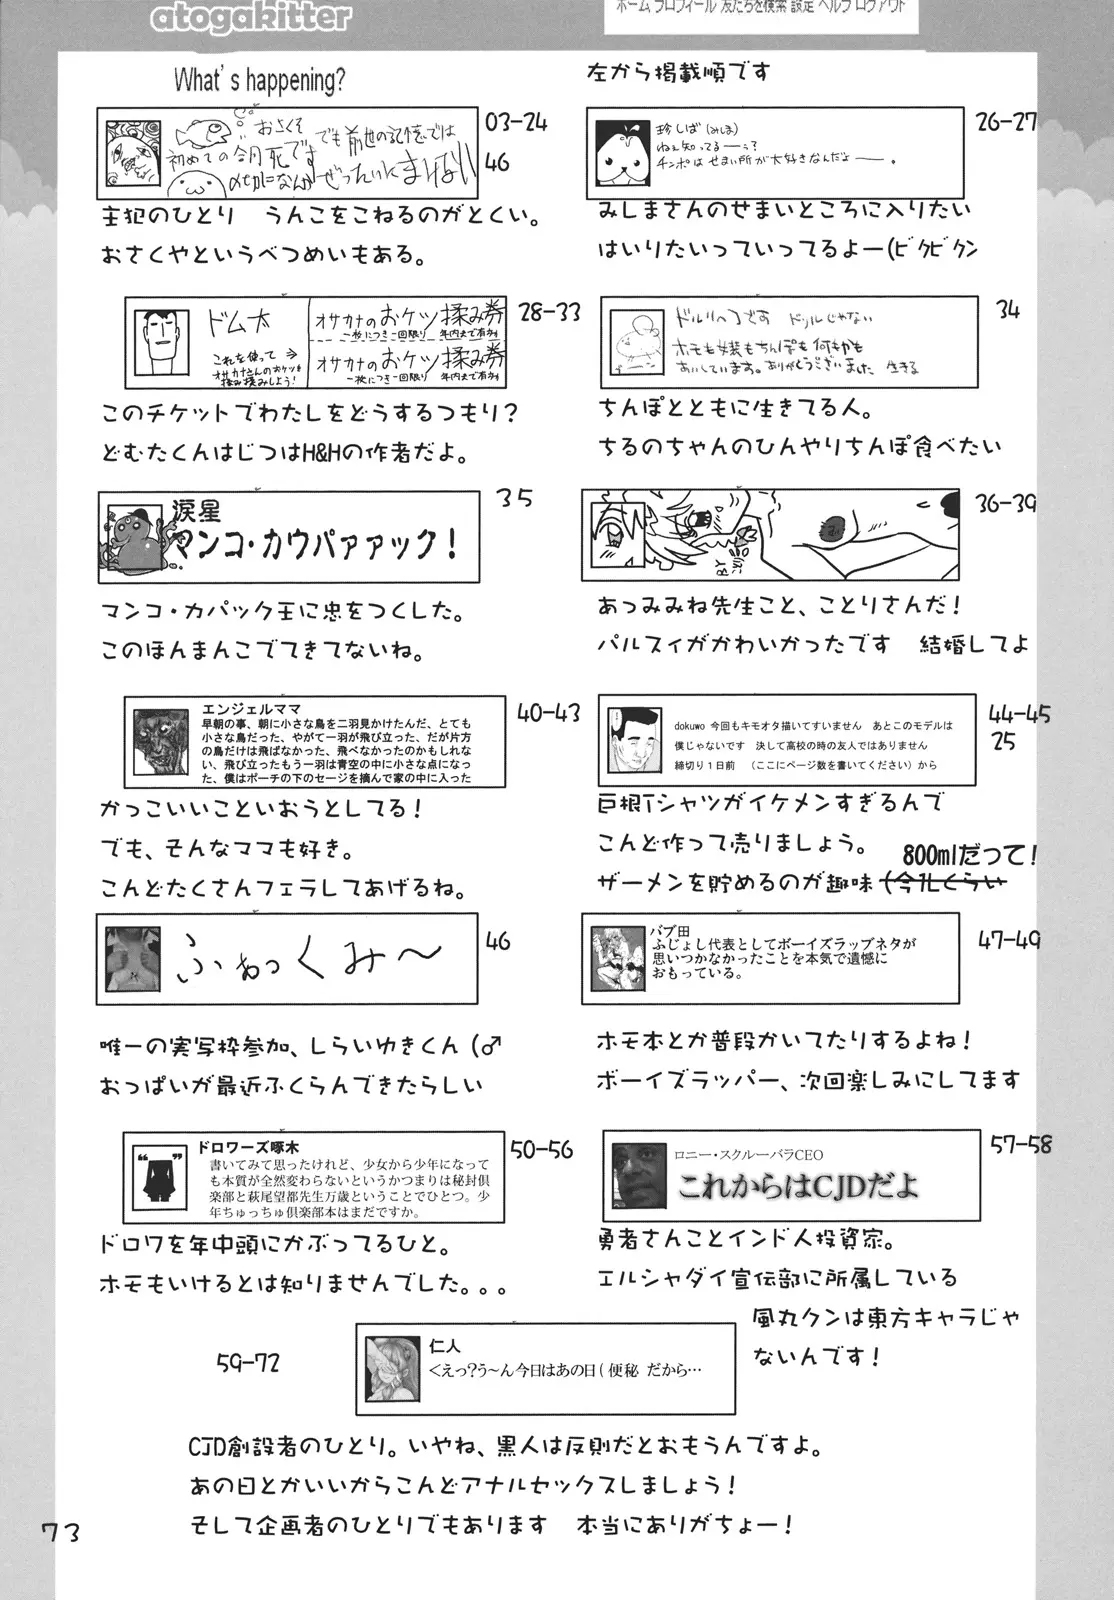 atogakitter
ホーム プロフィール 友だちを検索 設定 ヘルプ ログアウト
What's happening?
左から掲載順です
おさくそ
初めての今月死です
でも前世の記憶では
ぜったいにまけない
03-24
46
主犯のひとり　うんこをこねるのがとくい。
おさくやというべつめいもある。
珍しば(みしま)
ねぇ知ってる――ぅ?
チンポはせまい所が大好きなんだよ――。
26-27
みしまさんのせまいところに入りたい
はいりたいっていってるよー(ビクビクン
ドム太
これを使って⇒
オサカナさんのおケツを
揉み揉みしよう!
オサカナのおケツ揉み券
一枚につき一回限り 年内まで有効
オサカナのおケツ揉み券
一枚につき一回限り 年内まで有効
28-33
このチケットでわたしをどうするつもり?
どむたくんはじつはH&Hの作者だよ。
です ドリルじゃない
ホモも嫁もちんぽも何もかも
あいしています。ありがとうございました 生きる
34
ちんぽとともに生きてる人。
ちるのちゃんのひんやりちんぽ食べたい
涙星
マンコ・カウパァァック!
35
マンコ・カパック王に忠をつくした。
このほんまんこでてきてないね。
36-39
あつみみね先生こと、ことりさんだ!
パルスィがかわいかったです　結婚してよ
エンジェルママ
早朝の事、朝に小さな鳥を二羽見かけたんだ、とても
小さな鳥だった、やがて一羽が飛び立った、だが片方
の鳥だけは飛ばなかった、飛べなかったのかもしれな
い、飛び立ったもう一羽は青空の中に小さな点になっ
た、僕はポーチの下のセージを摘んで家の中に入った
40-43
かっこいいこといおうとしてる!
でも、そんなママも好き。
こんどたくさんフェラしてあげるね。
dokuwo 今回もキモオタ描いてすいません　あとこのモデルは
僕じゃないです　決して高校の時の友人ではありません
締切り1日前　(ここにページ数を書いてください)から
44-45
25
巨根Tシャツがイケメンすぎるんで
こんど作って売りましょう。
800mlだって!
ザーメンを貯めるのが趣味
ふぁっくみ〜
46
唯一の実写枠参加、しらいゆきくん(♂
おっぱいが最近ふくらんできたらしい
バブ田
ふじょし代表としてボーイズラップネタが
思いつかなかったことを本気で遺憾に
おもっている。
47-49
ホモ本とか普段かいてたりするよね!
ボーイズラッパー、次回楽しみにしてます
ドロワーズ啄木
書いてみて思ったけれど、少女から少年になって
も本質が全然変わらないというかつまりは秘封倶
楽部と萩尾望都先生万歳ということでひとつ。少
年ちゅっちゅ倶楽部本はまだですか。
50-56
ドロワを年中頭にかぶってるひと。
ホモもいけるとは知りませんでした。。。
ロニー・スクルーバラCEO
これからはCJDだよ
57-58
勇者さんことインド人投資家。
エルシャダイ宣伝部に所属している
風丸クンは東方キャラじゃ
ないんです!
59-72
仁人
<えっ?う〜ん今日はあの日( 便秘 だから…
CJD創設者のひとり。いやね、黒人は反則だとおもうんですよ。
あの日とかいいからこんどアナルセックスしましょう!
そして企画者のひとりでもあります　本当にありがちょー!
73